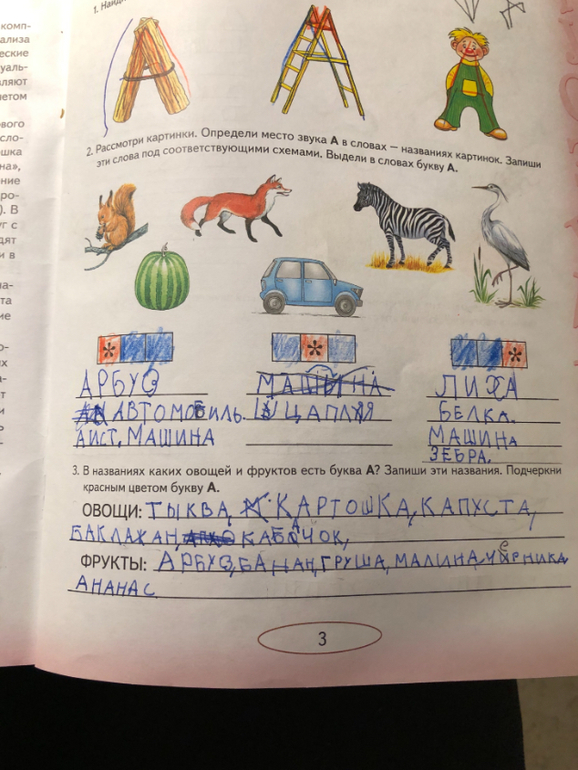 1. Найд
комп-
ализа
ческие
уаль-
вляют
четом
вого
сло-
ошка
на»,
ение
про-
). В
уг с
дят
и в
на-
та
ие
2. Рассмотри картинки. Определи место звука А в словах — названиях картинок. Запиши
эти слова под соответствующими схемами. Выдели в словах букву А.
* * *
АРБУЗ МАШИНА ЛИХА
АВТОМОБИЛЬ. ЦАПЛЯ БЕЛКА.
АИСТ, МАШИНА МАШИНА
ЗЕБРА.
3. В названиях каких овощей и фруктов есть буква А? Запиши эти названия. Подчеркни
красным цветом букву А.
ОВОЩИ: ТЫКВА, КАРТОШКА, КАПУСТА,
БАКЛАЖАН, КАБАЧОК,
ФРУКТЫ: АРБУЗ, БАНАН, ГРУША, МАЛИНА, ЧЕРНИКА
АНАНАС
3